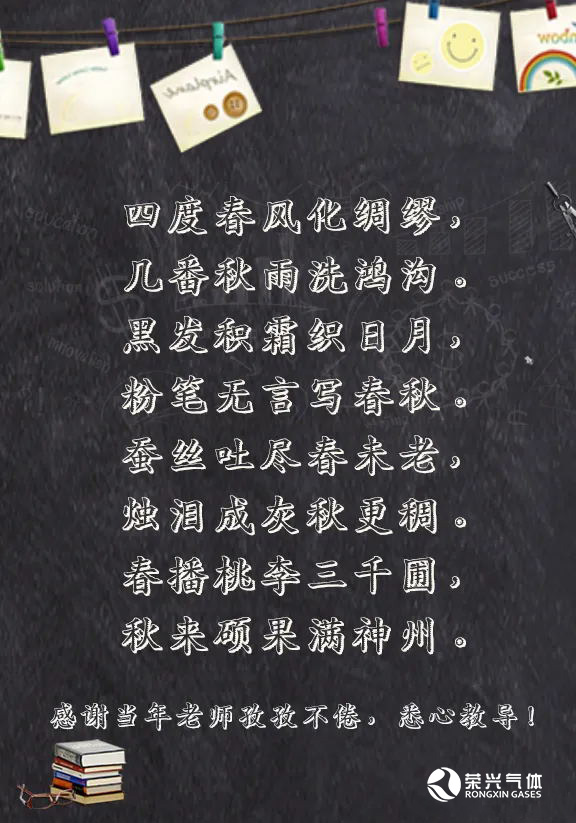 Airplane
四度春风化绸缪，
几番秋雨洗鸿沟。
黑发积霜织日月，
粉笔无言写春秋。
蚕丝吐尽春未老，
烛泪成灰秋更稠。
春播桃李三千圃，
秋来硕果满神州。
感谢当年老师孜孜不倦，悉心教导！
荣兴气体
RONGXIN GASES